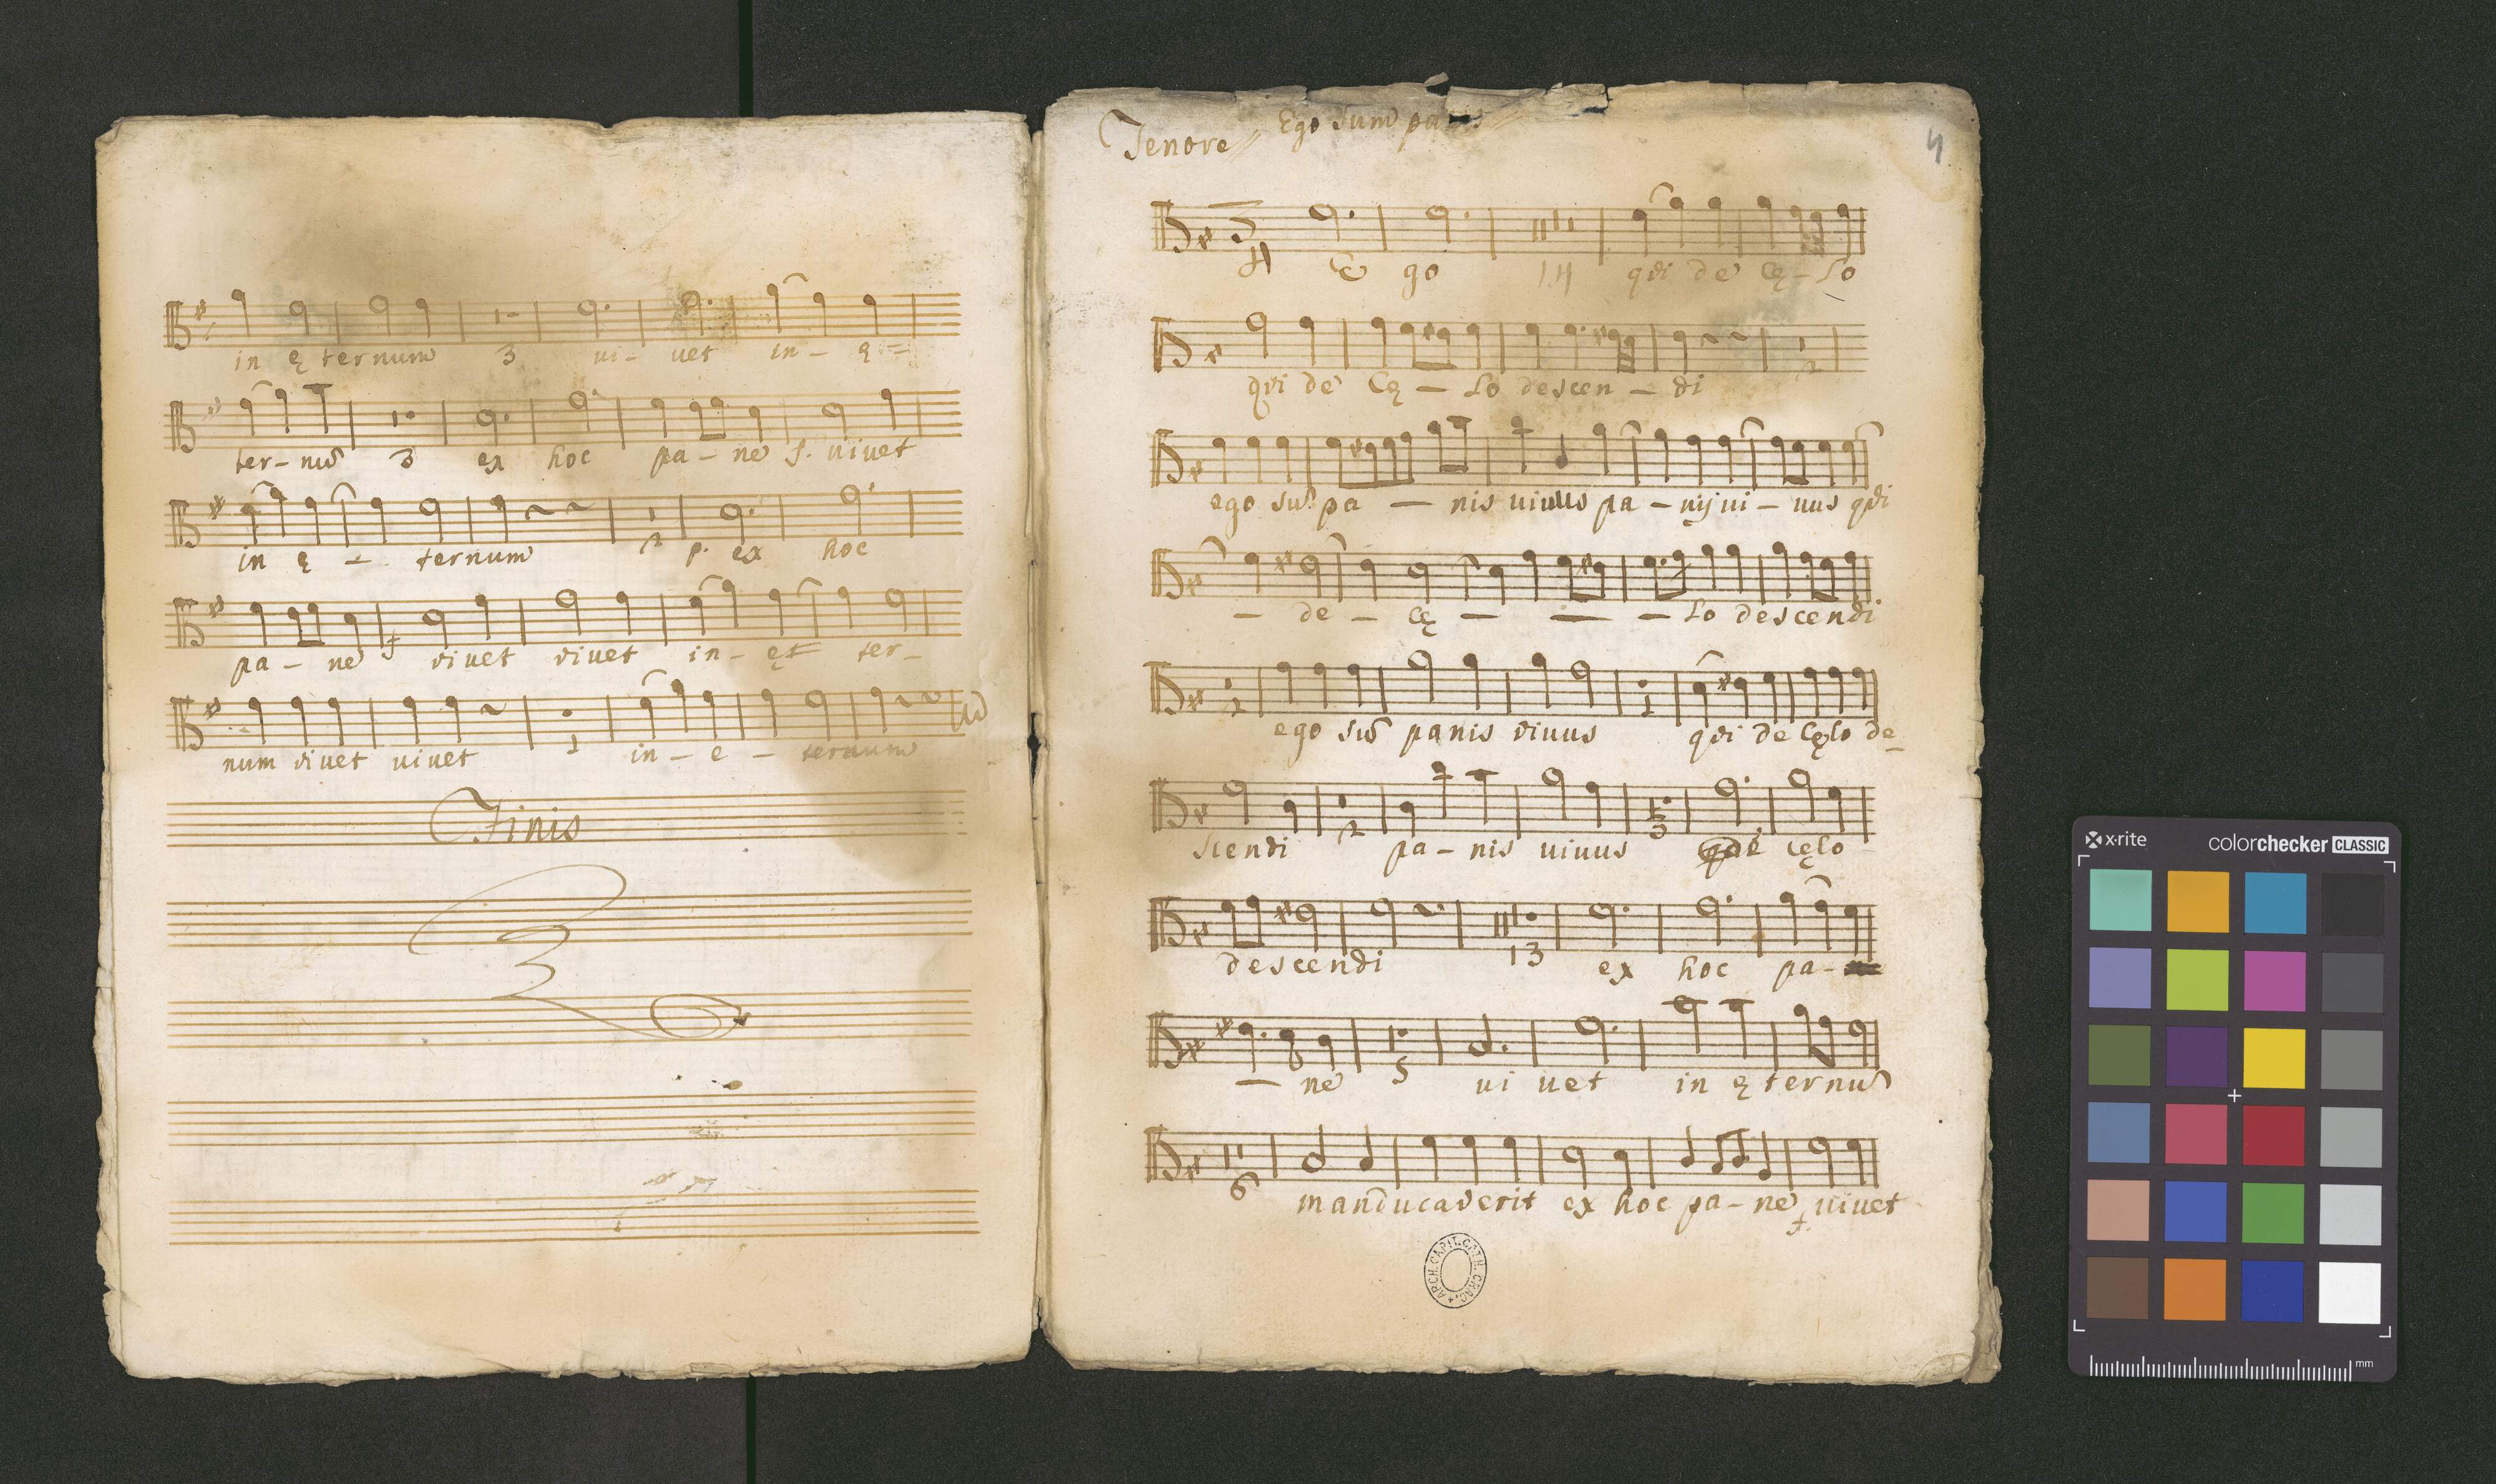 in ę ternum 3 ui- uet in- ę-
ter-nũ 3 ex hoc pa-ne f. uiuet
in ę - ternum 2 p. ex hoc
pa-ne f viuet viuet in- ę ter-
num viuet uiuet 1 in-e-ternum
Finis
Tenore Ego Sum
4
3
4 E go 14 qui de Cę-lo
qui de Cę-lo descen-di 2
ego sũ pa-nis uiuus pa-nis ui-uus qui
- de - cę - - - lo descendi
2 ego sũ panis viuus 1 qui de Cęlo de-
scendi 2 pa-nis uiuus 5 cęlo
descendi 13 ex hoc pa-
- ne 5 ui uet in ę ternũ
6 manducaverit ex hoc pa-ne f. uiuet
ARCH. CAPIT. CATH. CRAC.
x-rite
colorchecker CLASSIC
mm